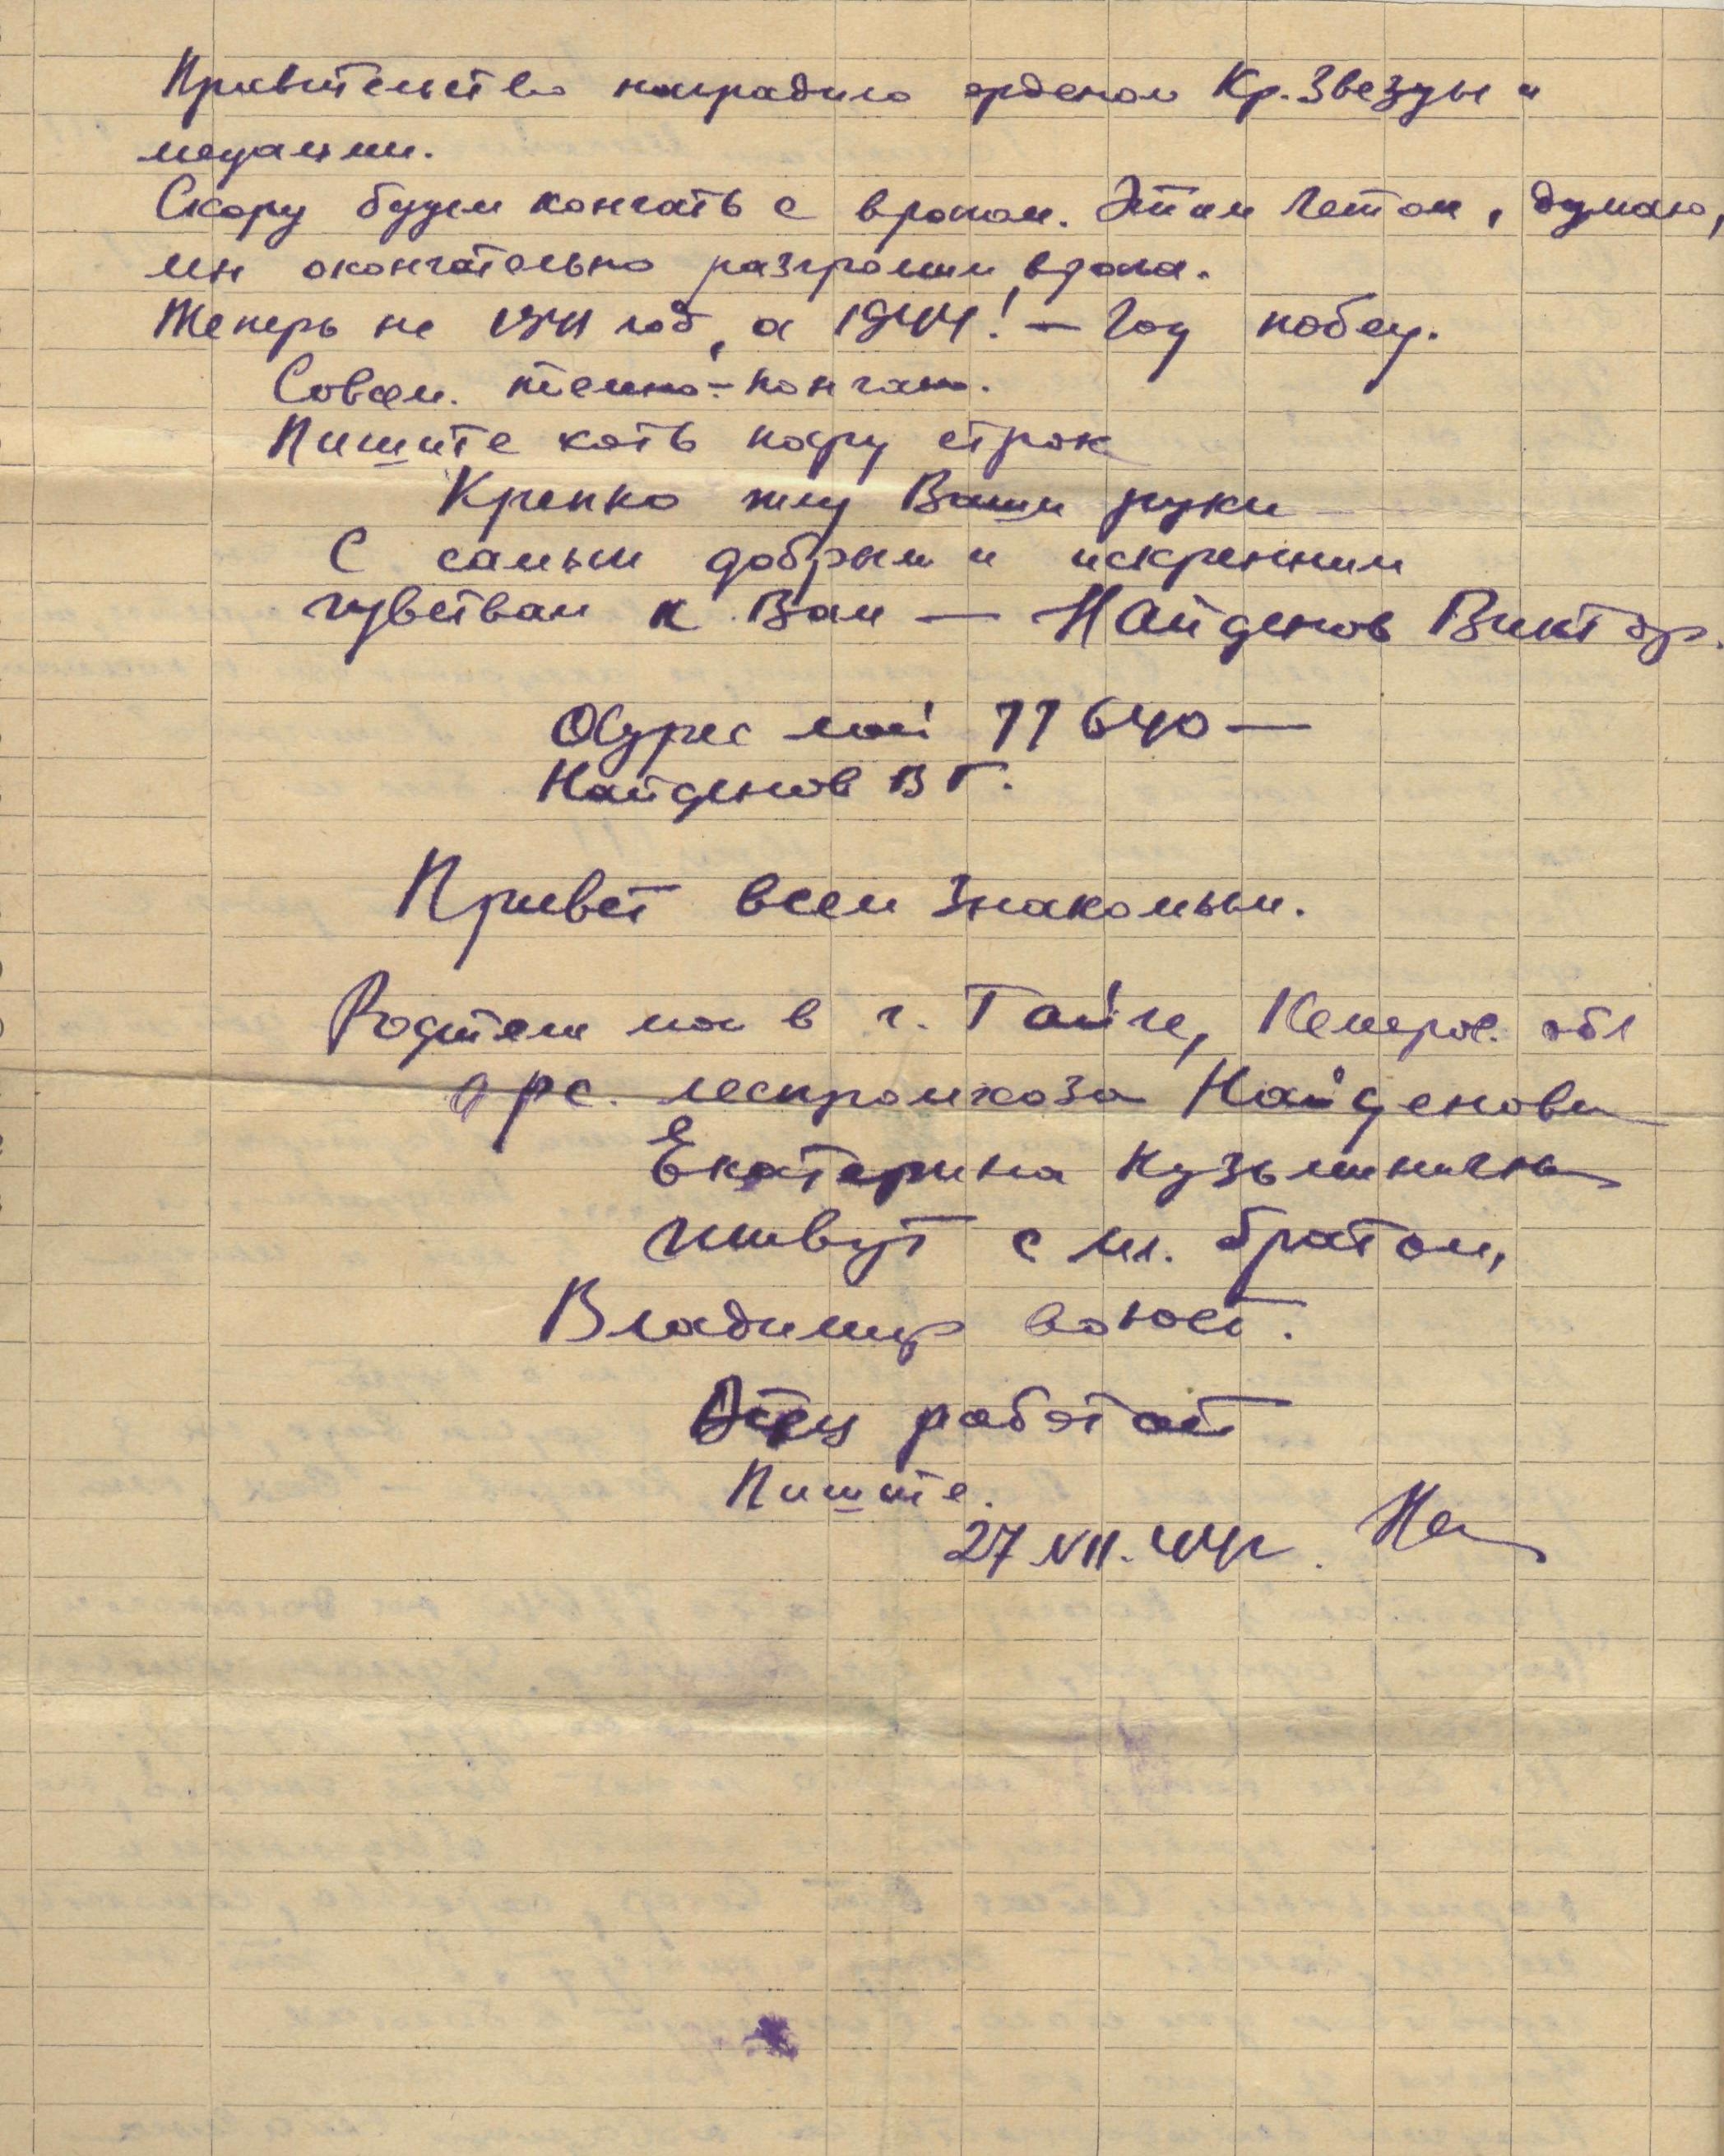 Правительство наградило орденом Кр. Звезды и
медалями.
Скоро будем кончать с врагом. Этим летом, думаю,
мы окончательно разгромим врага.
Теперь не 1941 год, а 1944! — Год побед.
Совсем. темно - кончаю.
Пишите хоть пару строк
Крепко жму Ваши руки
С самым добрым и искренним
чувствам к Вам — Найденов Виктор.
Адрес мой 77640 —
Найденов В Г.
Привет всем знакомым.
Родители мои в г. Тайге, Кемеров. обл
орс. леспромхоза Найденова
Екатерина Кузьминична
живут с мл. братом,
Владимир воюет.
Отец работает
Пишите.
27.VII.44г. На